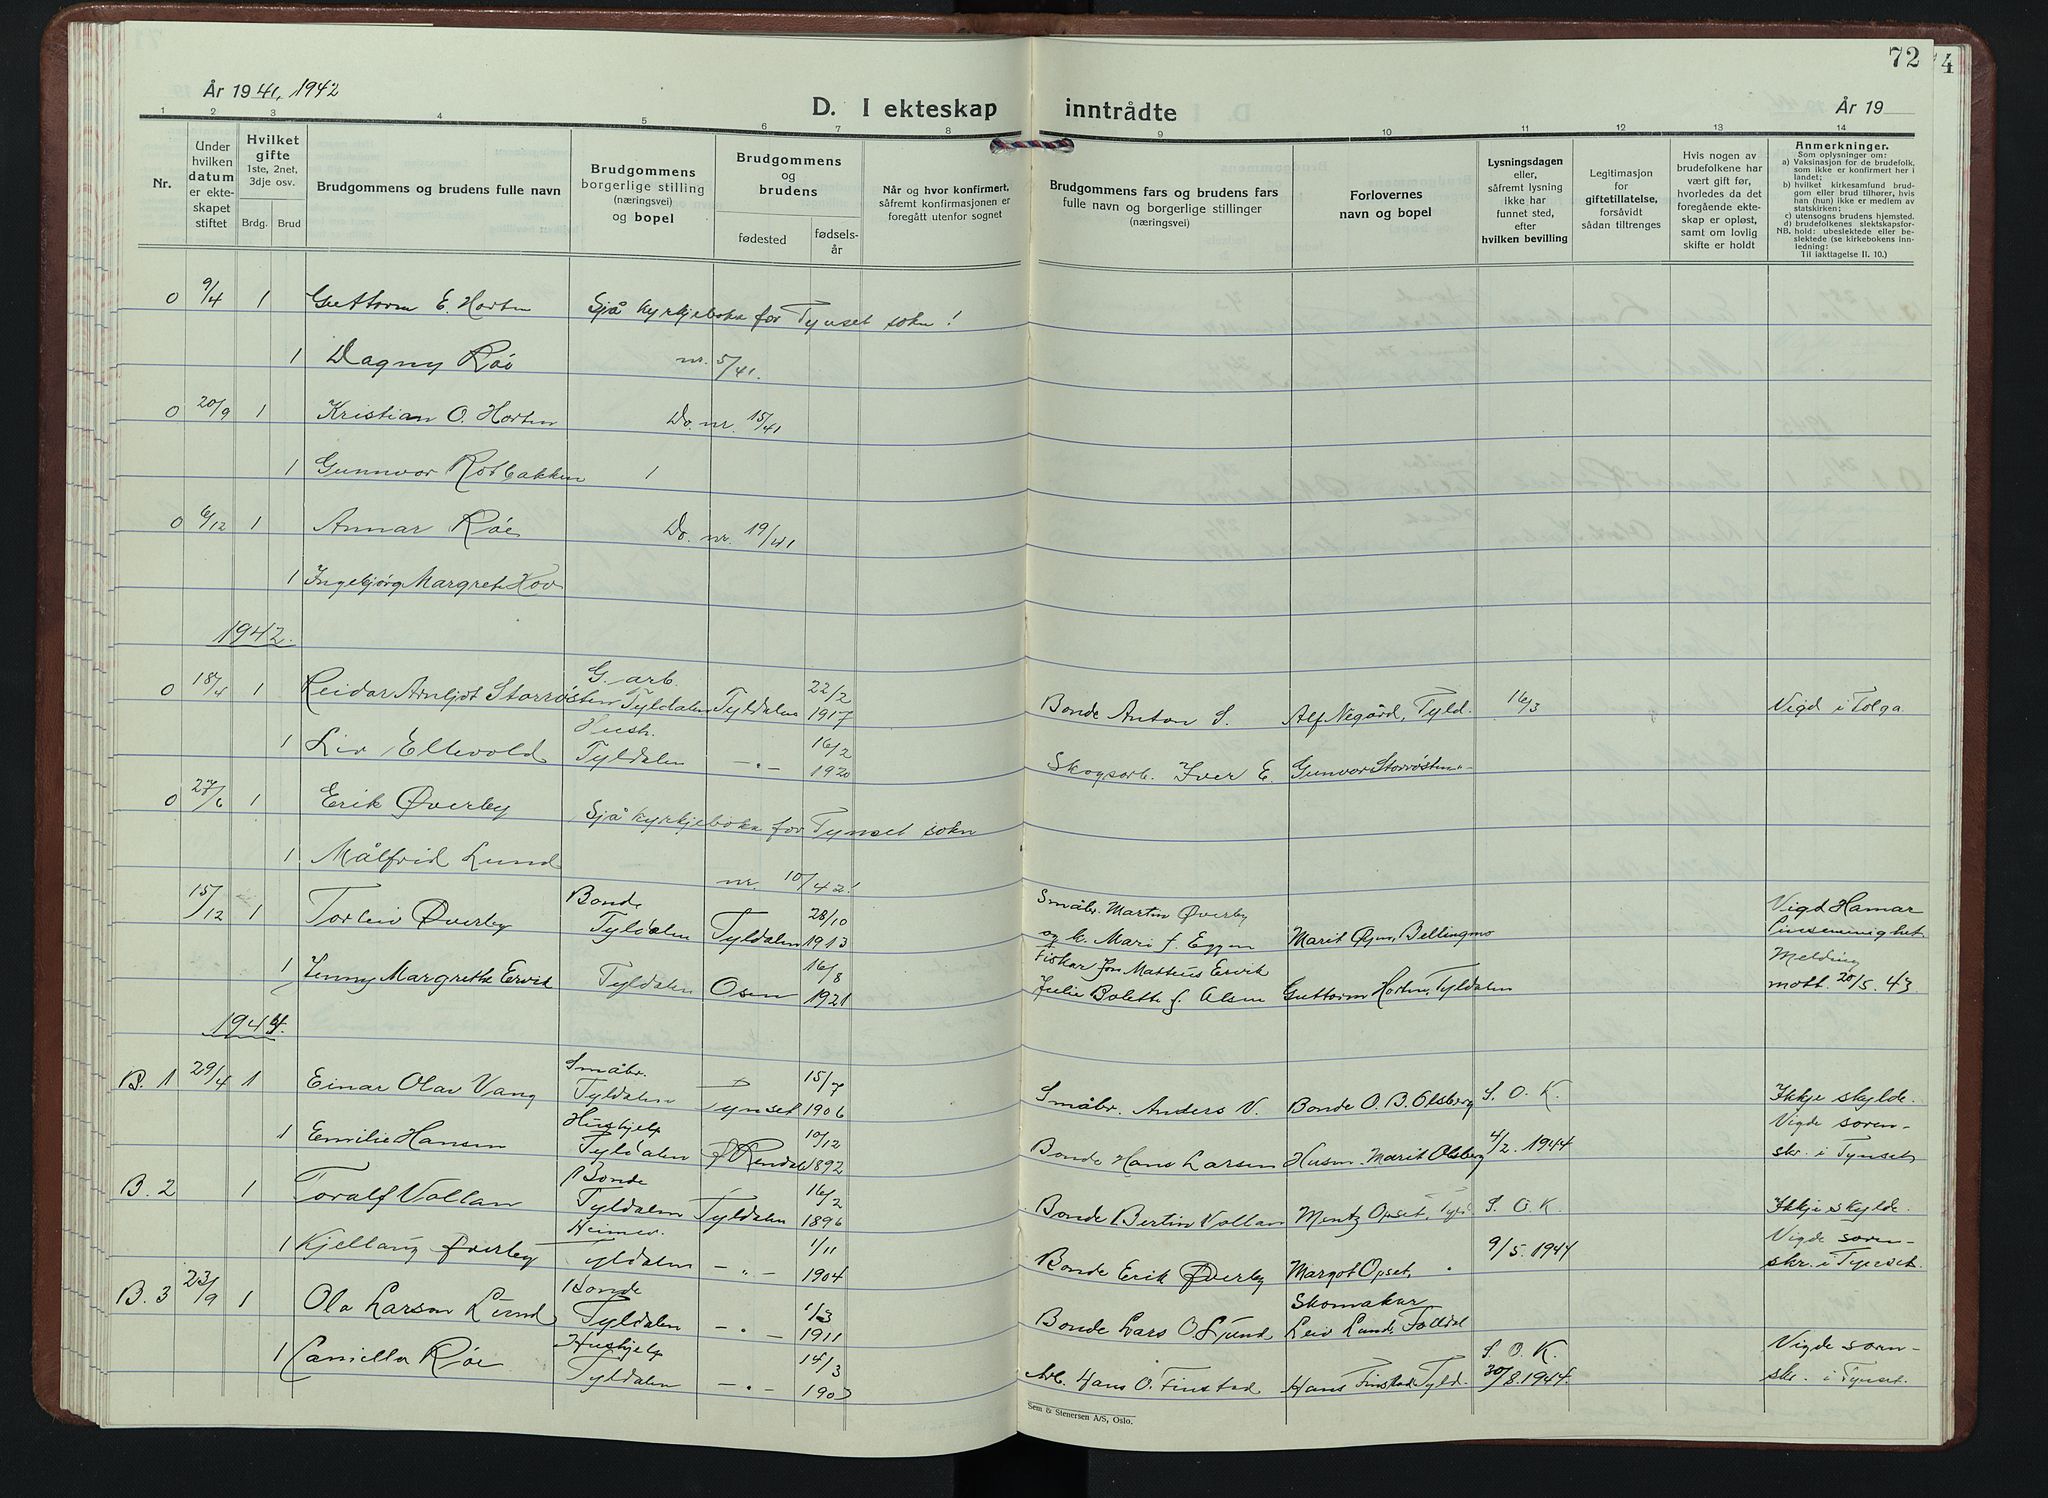 72
4
År 1941, 1942
D. I ekteskap inntrådte
År 19
1 2 3 4 5 6 7 8 9 10 11 12 13 14
Nr.
Under hvilken datum er ekteskapet stiftet
Hvilket gifte 1ste, 2net, 3dje osv.
Brdg. Brud
Brudgommens og brudens fulle navn
Brudgommens borgerlige stilling (næringsvei) og bopel
Brudgommens og brudens
fødested
fødselsår
Når og hvor konfirmert, såfremt konfirmasjonen er foregått utenfor sognet
Brudgommens fars og brudens fars fulle navn og borgerlige stillinger (næringsvei)
Forlovernes navn og bopel
Lysningsdagen eller, såfremt lysning ikke har funnet sted, efter hvilken bevilling
Legitimasjon for giftetillatelse, forsåvidt sådan tiltrenges
Hvis nogen av brudefolkene har vært gift før, hvorledes da det foregående ekteskap er opløst, samt om lovlig skifte er holdt
Anmerkninger.
Som oplysninger om:
a) Vaksinasjon for de brudefolk, som ikke er konfirmert her i landet;
b) hvilket kirkesamfund brudgom eller brud tilhører, hvis han (hun) ikke er medlem av statskirken;
c) utensogns brudens hjemsted.
d) brudefolkenes slektskapsforhold: ubeslektede eller beslektede (se kirkebokens innledning:
NB.
Til iakttagelse II. 10.)
0 9/4 1 Guttorm E. Horten Sjå kyrkjeboka for Tynset sokn!
1 Dagny Røe nr. 5/41.
0 20/9 1 Kristian O. Horten Do. nr. 15/41
1 Gunnvor Rötbakken 1
0 6/12 1 Annar Røe Do. nr. 19/41
1 Ingebjörg Margrete Hov
1942.
0 18/4 1 Reidar Arnljot Storrösten G. arb. Tyldalen Tyldalen 22/2 1917 Bonde Anton S. Alf Negård, Tyld. 16/3 Vigd i Tolga
1 Liv Ellevold Hush. Tyldalen -"- 16/2 1920 Skogsarb. Iver E. Gunvor Storrösten -"-
0 27/6 1 Erik Øverby Sjå kyrkjeboka for Tynset sokn
1 Målfrid Lund nr. 10/42!
15/12 1 Torleiv Øverby Bonde Tyldalen Tyldalen 28/10 1913 Småbr. Martin Øverby og k. Mari f. Eggen Marit Øien, Bellingmo Vigd Hamar
1 Jenny Margrethe Ervik Tyldalen Osen 16/8 1921 Fiskar Jon Matteus Ervik Julie Bolette f. Olsen Guttorm Horten, Tyldalen Melding mott. 20/5. 43
1944.
B. 1 29/4 1 Einar Olav Vang Småbr. Tyldalen Tynset 15/7 1906 Småbr. Anders V. Bonde O. B. Olsberg S. O. K. Ikkje skylde.
1 Emilie Hansen Hushjelp Tyldalen Ø Rendal 10/12 1892 Bonde Hans Larsen Husm. Marit Olsberg 4/2. 1944 Vigde sorenskr. i Tynset
B. 2 1 Toralf Vollan Bonde Tyldalen Tyldalen 16/2 1896 Bonde Bertin Vollan Mentz Opset, Tyld S. O. K. Ikkje skylde.
1 Kjellaug Øverby Heimev. Tyldalen -"- 1/11 1904 Bonde Erik Øverby Margot Opset, " 9/5. 1944 Vigde sorenskr. i Tynset.
B. 3 23/9 1 Ola Larson Lund Bonde Tyldalen -"- 1/3 1911 Bonde Lars O. Lund Skomakar Leiv Lund, Folldal
1 Camilla Røe Hushjelp Tyldalen -"- 14/3 1903 Arb. Hans O. Finstad Hans Finstad, Tyld. S. O. K. 30/8. 1944. Vigde sorenskr. i Tynset.
Sem & Stenersen A/S, Oslo.